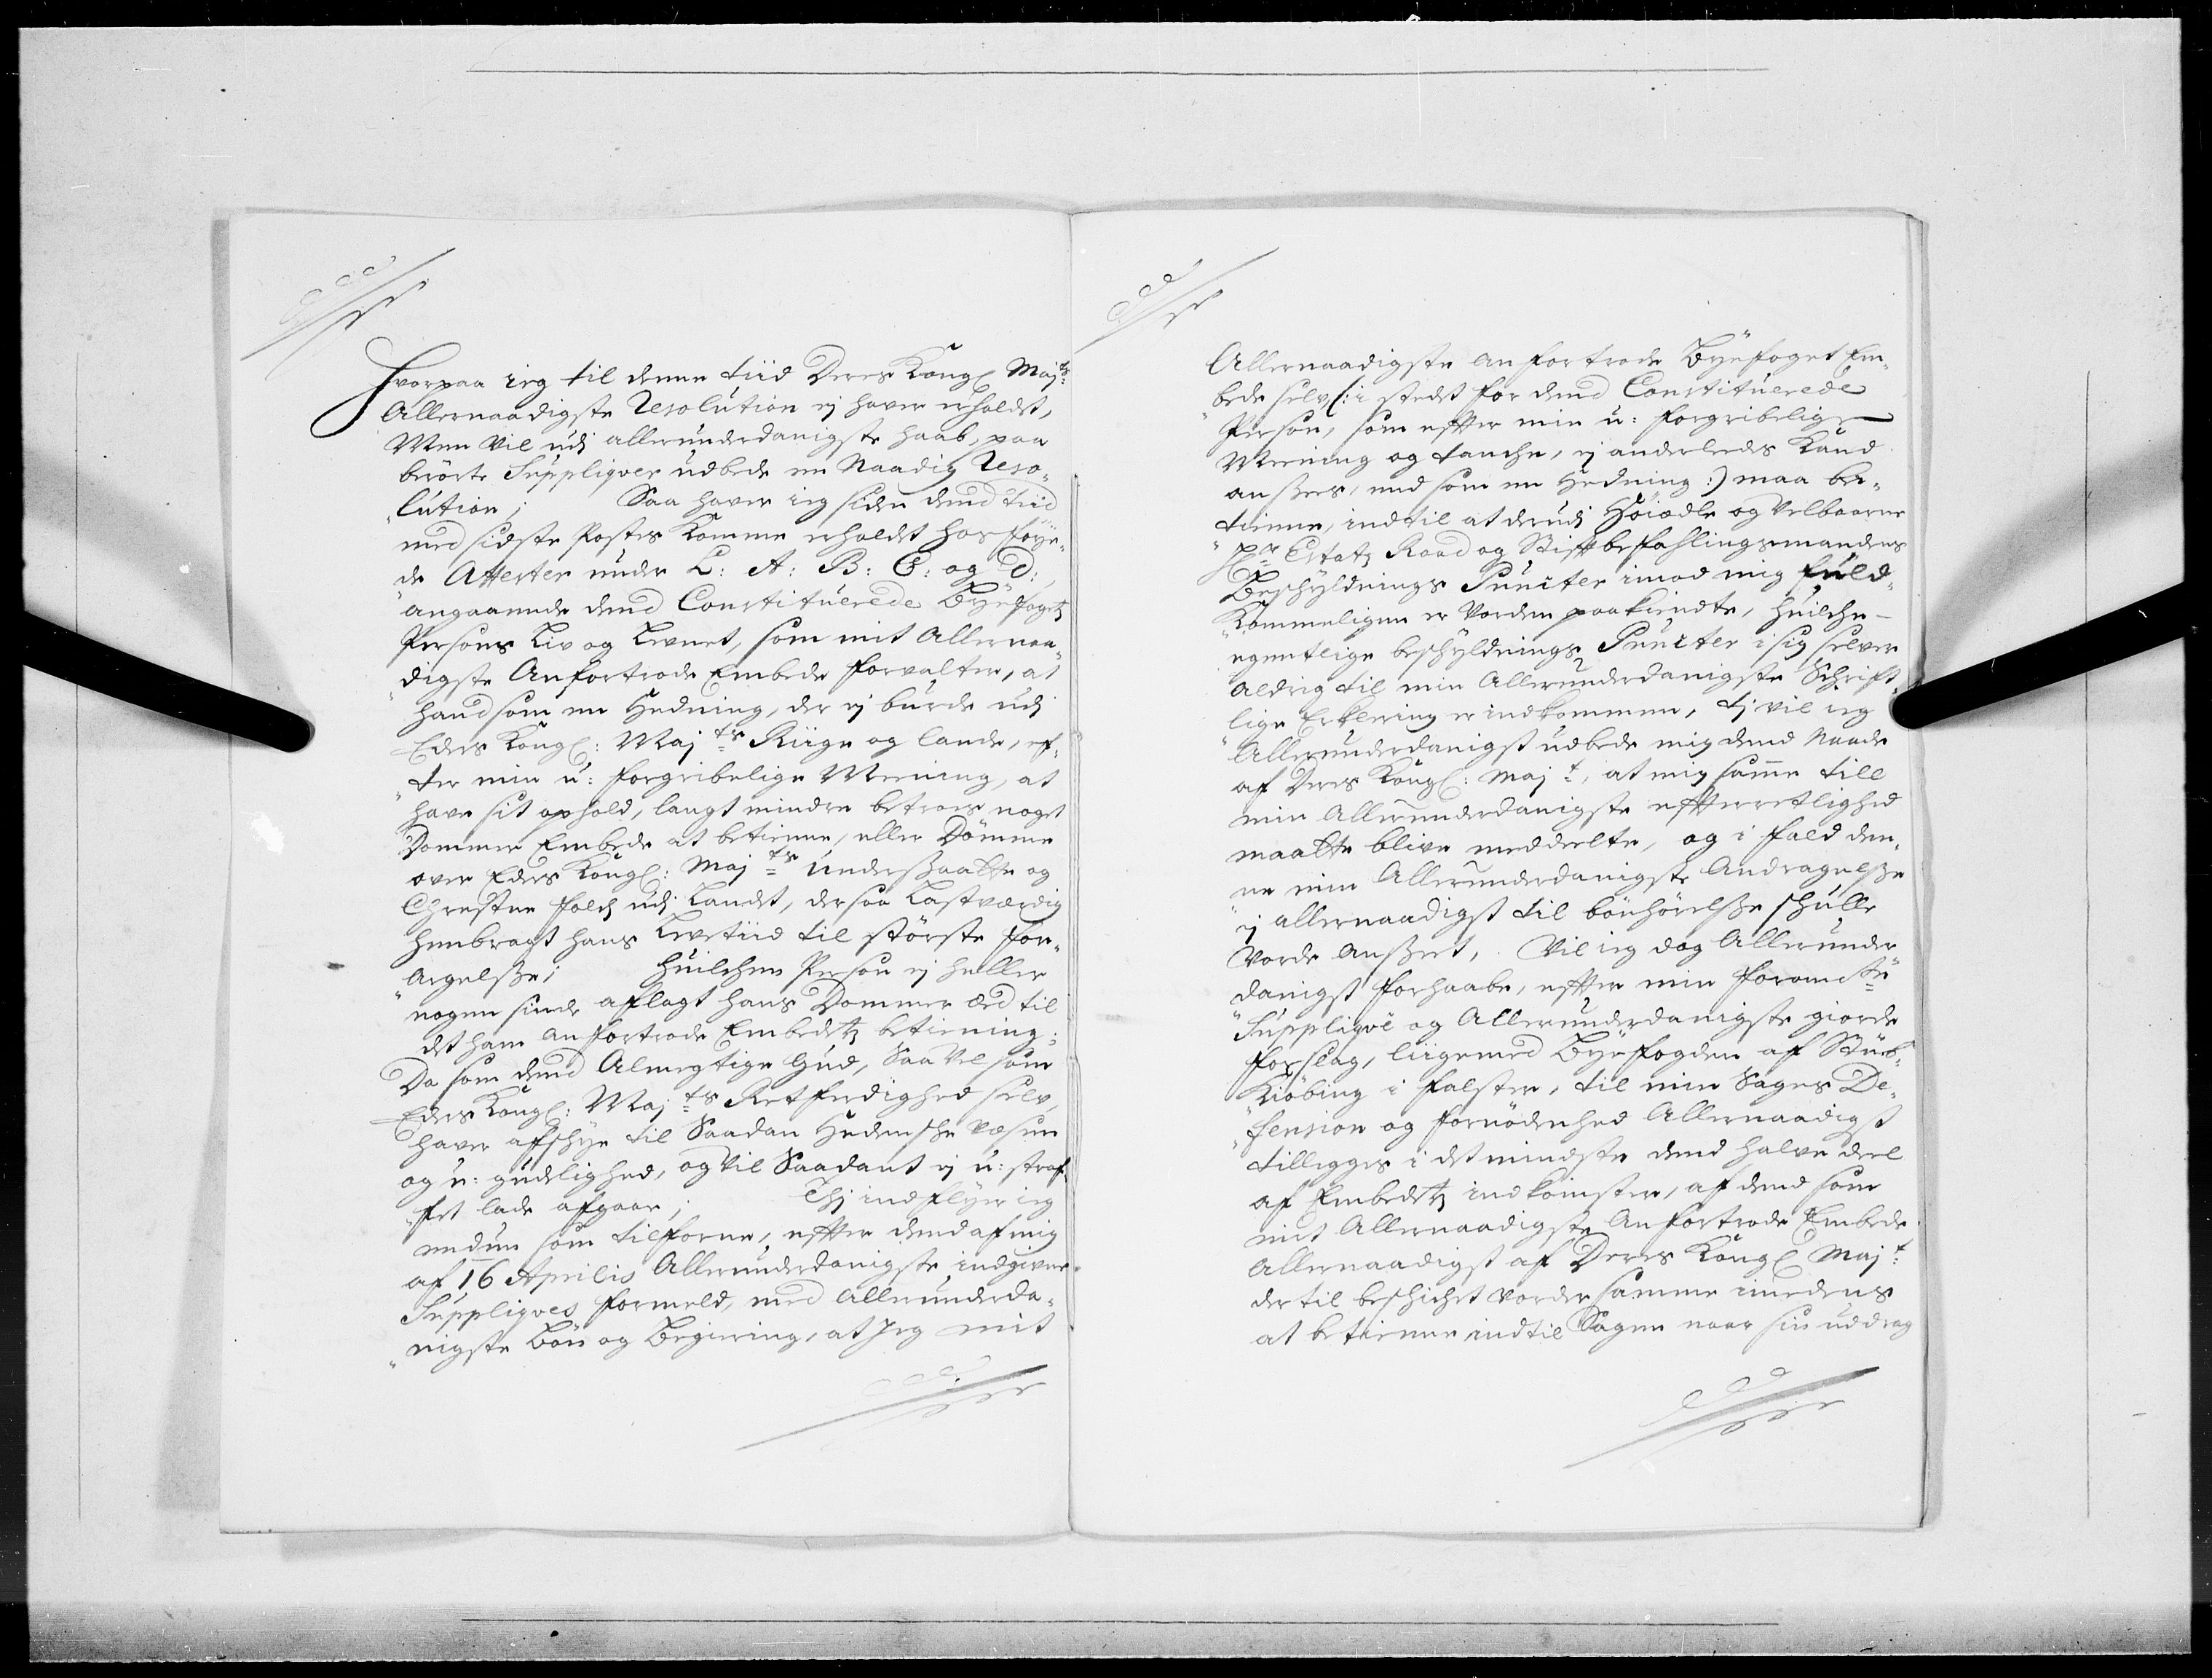 Hvorpaa ieg til denne tiid Deres Kongl Majts
Allernaadigste Resolution ej haver erholdet,
Men vil udj allerunderdanigste haab, paa
berörte Suppliqver udbede en Naadig Reso-
lution; Saa haver ieg siden dend tiid
med sidste Postes Komme erholdt hos föye-
de Attester under L: A: B: C: og D:,
angaaende dend Constituerede Byefogetz
Persons Liv og Levnet, som mit Allernaa-
digste Anfortrode Embede forvalter, at
hand som en Hedning, der ej burde udj
Eders Kongl: Majts Riige og lande, ef-
ter min u: forgribelige Meening, at
have sit ophold, langt mindre betroes noget
Dommer Embede at betienne, eller Dömme
over Eders Kongl: Majts Underßaatte og
Christne folch udj Landet, der saa Lastværdig
henbragt hans Levetiid til störste for-
argelße; Huilchen Person ej heller
nogen sinde aflagt hans Dommer æd til
det ham anfortrode Embedetz betiening:
Da som dend Almegtige Gud, Saa vel som
Eders Kongl: Majts Retferdighed selv,
haver afschye til Saadan Hedensche Væsen
og u: gudelighed, og vil Saadant ej u: straf-
fet lade afgaae; Thj indflyer ieg
endnu som tilforne, effter dend af mig
af 16 Aprilis Allerunderdanigste indgivne
Suppliqves formeld, med allerunderda-
nigste Bön og Begiering, at Jeg mit
Allernaadigste anfortrode Byefoget Em-
bede selv (: i stedet for dend Constituerede
Person, som effter min u: forgribelige
Meening og tanche, ej anderledes Kand
anßees, end som en Hedning :) maa be-
tienne, indtil at derudj Höiædle og Velbaarne
Hr Estatz Raad og Stiftbefahlingsmandens
Beschyldnings Puncter imod mig fuld-
Kommeligen er vorden paakiendte, huilche
egentlige beschyldnings Puncter i sig selver
aldrig til min Allerunderdanigste Schrift-
lige Erklering er indkommen, tj vil ieg
Allerunderdanigst udbede mig dend Naade
af Deres Kongl: Majt, at mig samme till
min Allerunderdanigste effterretlighed
maatte blive meddeelte, og i fald den-
ne min Allerunderdanigste Andragelße
ej allernaadigst til bönhörelße schulle
vorde Anßeet, Vil ieg dog Allerunder
danigst forhaabe, effter min forom
Suppliqve og Allerunderdanigste giorde
forslag, liigemed Byefogden af Stub-
Kiöbing i Falster, til min Sages De-
fension og fornödenhed Allernaadigst
tillegges i det mindste dend halve deel
af Embedetz indkomster, af dend som
mit Allernaadigste Anfortrode Embede
Allernaadigst af Deres Kongl Majt
dertil beschichet vorder samme imedens
at betienne indtil Sagen naar sin uddrag